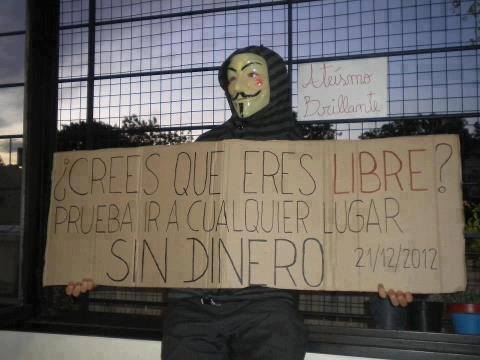 Ateísmo
Brillante
¿CREES QUE ERES LIBRE?
PRUEBA IR A CUALQUIER LUGAR
SIN DINERO
21/12/2012